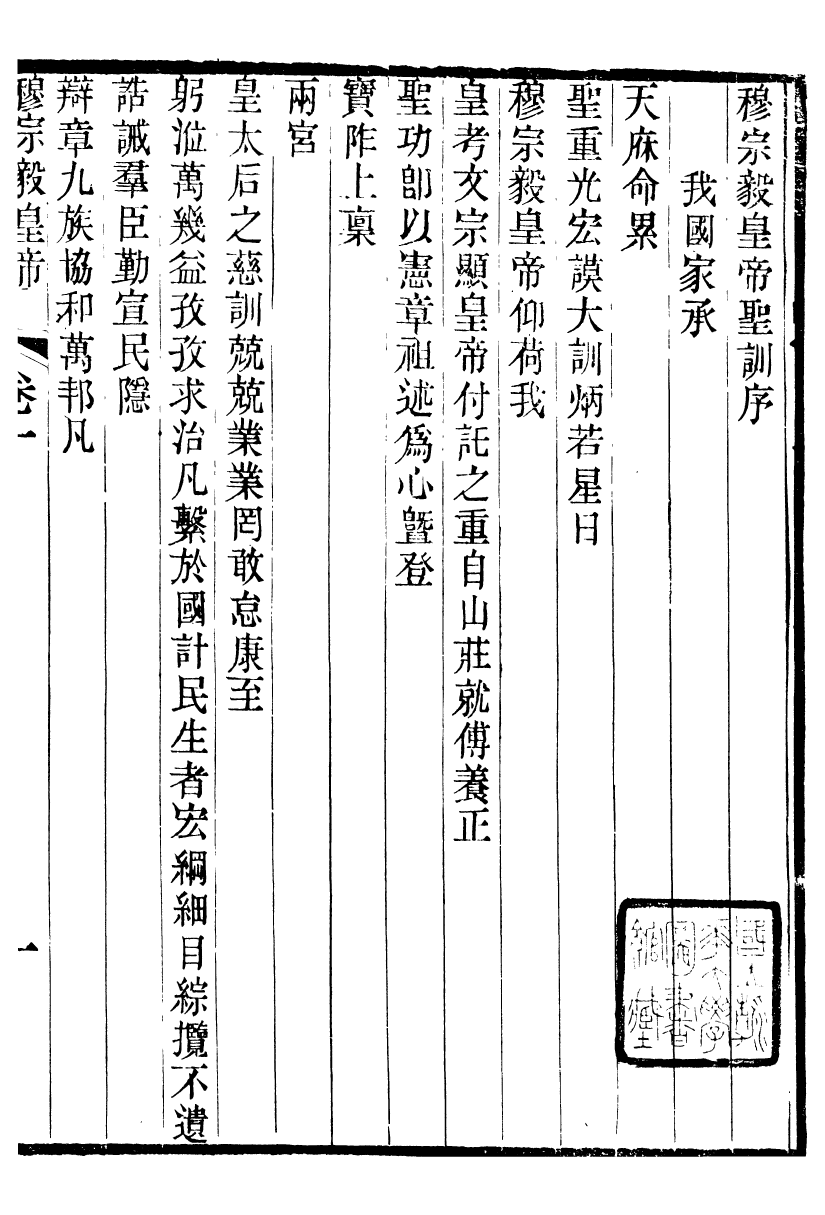 穆宗毅皇帝聖訓序
我國家承
天庥命累
聖重光宏謨大訓炳若星日
穆宗毅皇帝仰荷我
皇考文宗顯皇帝付託之重自山莊就傅養正
聖功卽以憲章祖述爲心曁登
寶阼上稟
兩宮
皇太后之慈訓兢兢業業罔敢怠康至
躬涖萬幾益孜孜求治凡繫於國計民生者宏綱細目綜攬不遺
誥誡羣臣勤宣民隱
辯章九族協和萬邦凡
穆宗毅皇帝 卷一 一
國立北平大學圖書館藏